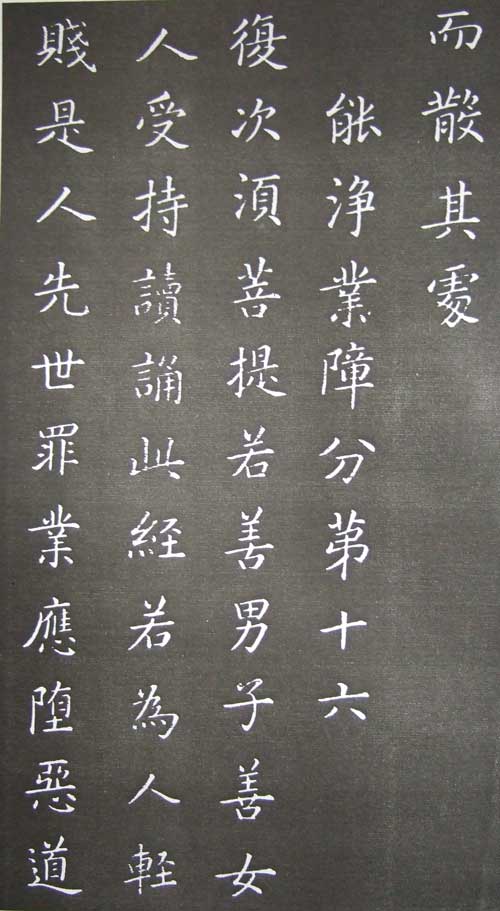 而散其處
能浄業障分第十六
復次湏菩提若善男子善女
人受持讀誦此経若為人軽
賤是人先世罪業應堕惡道